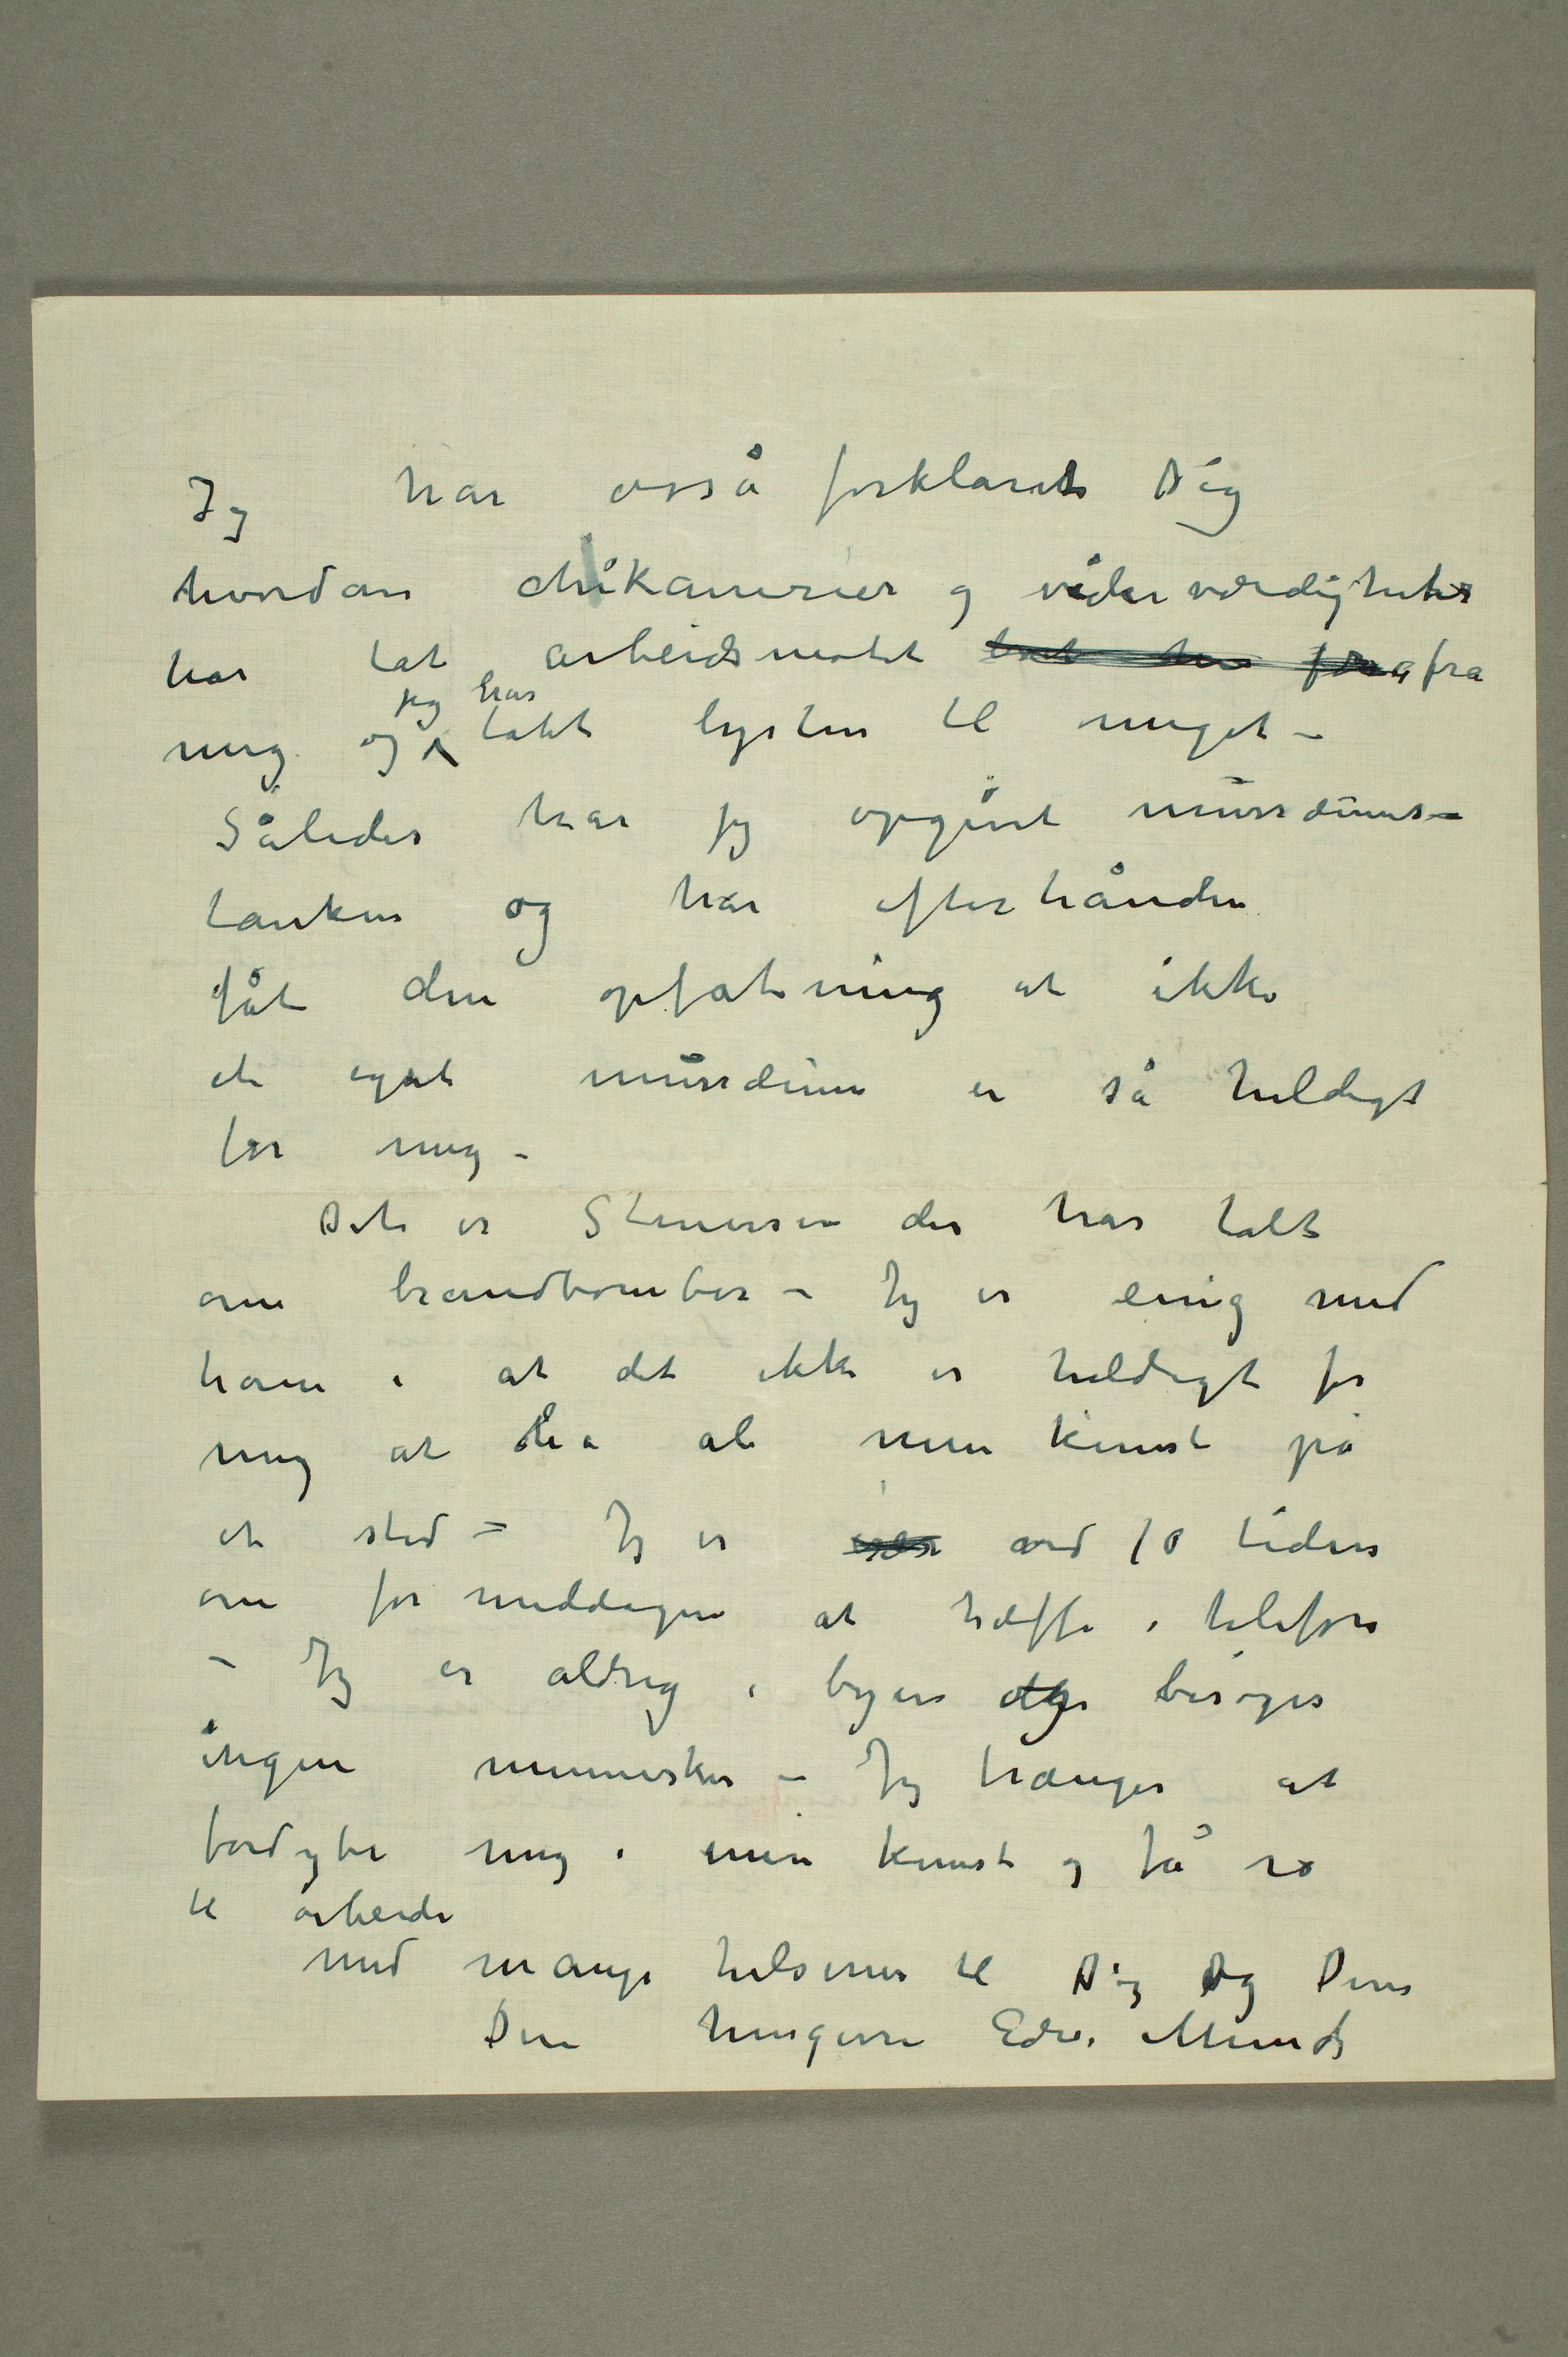 Jeg har osså forklaret Dig
hvordan chikanerier og viderværdigheter
har tat arbeidsmotet fra
mig og jeg har tabt lysten til meget –
Således har jeg opgivet mussæums-
tanken og har efterhånden
fåt den opfatning at ikke
et eget mussæum er så heldigt
for mig –
Det er Stenersen der har talt
om brandbomber – Jeg er enig med
ham i at det ikke er heldigt for
mig at ha al min kunst på
et sted – Jeg er ved 10 tiden
om formiddagen at træffe i telefon
– Jeg er aldrig i byen og besøges
ingen mennesker – Jeg trænger at
fordybe mig i min kunst og få ro
til arbeide
Med mange hilsener til Dig og Dine
Din hengivne Edv. Munch